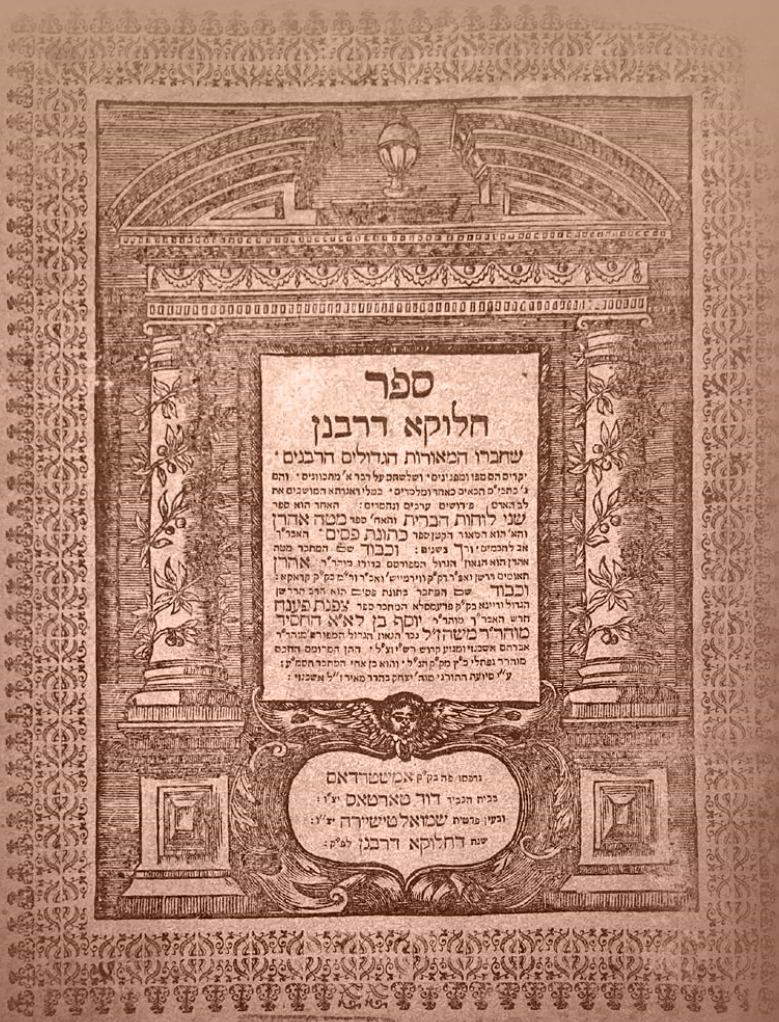 ספר
חלוקא דרבנן
שחברו המאורות הגדולים הרבנים׳
יקרים הם מפז ומפנינים׳ ושלשתם על דבר א׳ מתכוונים׳ והם
ג׳ כתבי״ם הבאים כאחד ומלכדים׳ במלי דאגדתא המושכים את
לב האדם׳ פירושים ערבים ונחמדים: האחד הוא ספר
שני לוחות הברית והאח׳ ספר מטה אהרן
והא׳ הוא המאור הקטן ספר כתונת פסים׳ האב״ד
אב לחכמים׳ ורך בשנים: וכבוד שם המחבר מטה
אהרן הוא הגאון הגדול המפורסם בדורו מוהר״ר אהרן
תאומים הדרשן ואב״ד דק״ק ווירמיישׂ ואב״ד ור״מ בק״ק קראקא:
וכבוד שם המחבר כתונת פסים הוא הרב הדרשן
הגדול ודיינא בק״ק פרעמסלא המחבר ספר צפנת פענח
חדש האב״ד מוהר״ר יוסף בן לא״א החסיד
מוהר״ר משה ז״ל נכד הגאון הגדול המפורס׳ מוהר״ר
אברהם אשכנזי ומגיע קדוש רש״י זצ״ל׳ חתן המרומם החכם
מוהרר נפתלי כ״ץ מק״ק הנ״ל׳ והוא בן אחי המחבר הסמ״ע:
ע״י סיועת התורני מוה׳ יצחק בהרר מאיר ז״ל אשכנזי:
נדפסו פה בק״ק אמשטרדאם
בבית הגביר דוד טארטאס יצ״ו:
ובעין פרטית שמואל טישיירה יצ״ו:
שנת דחלוקא דרבנן לפ״ק: